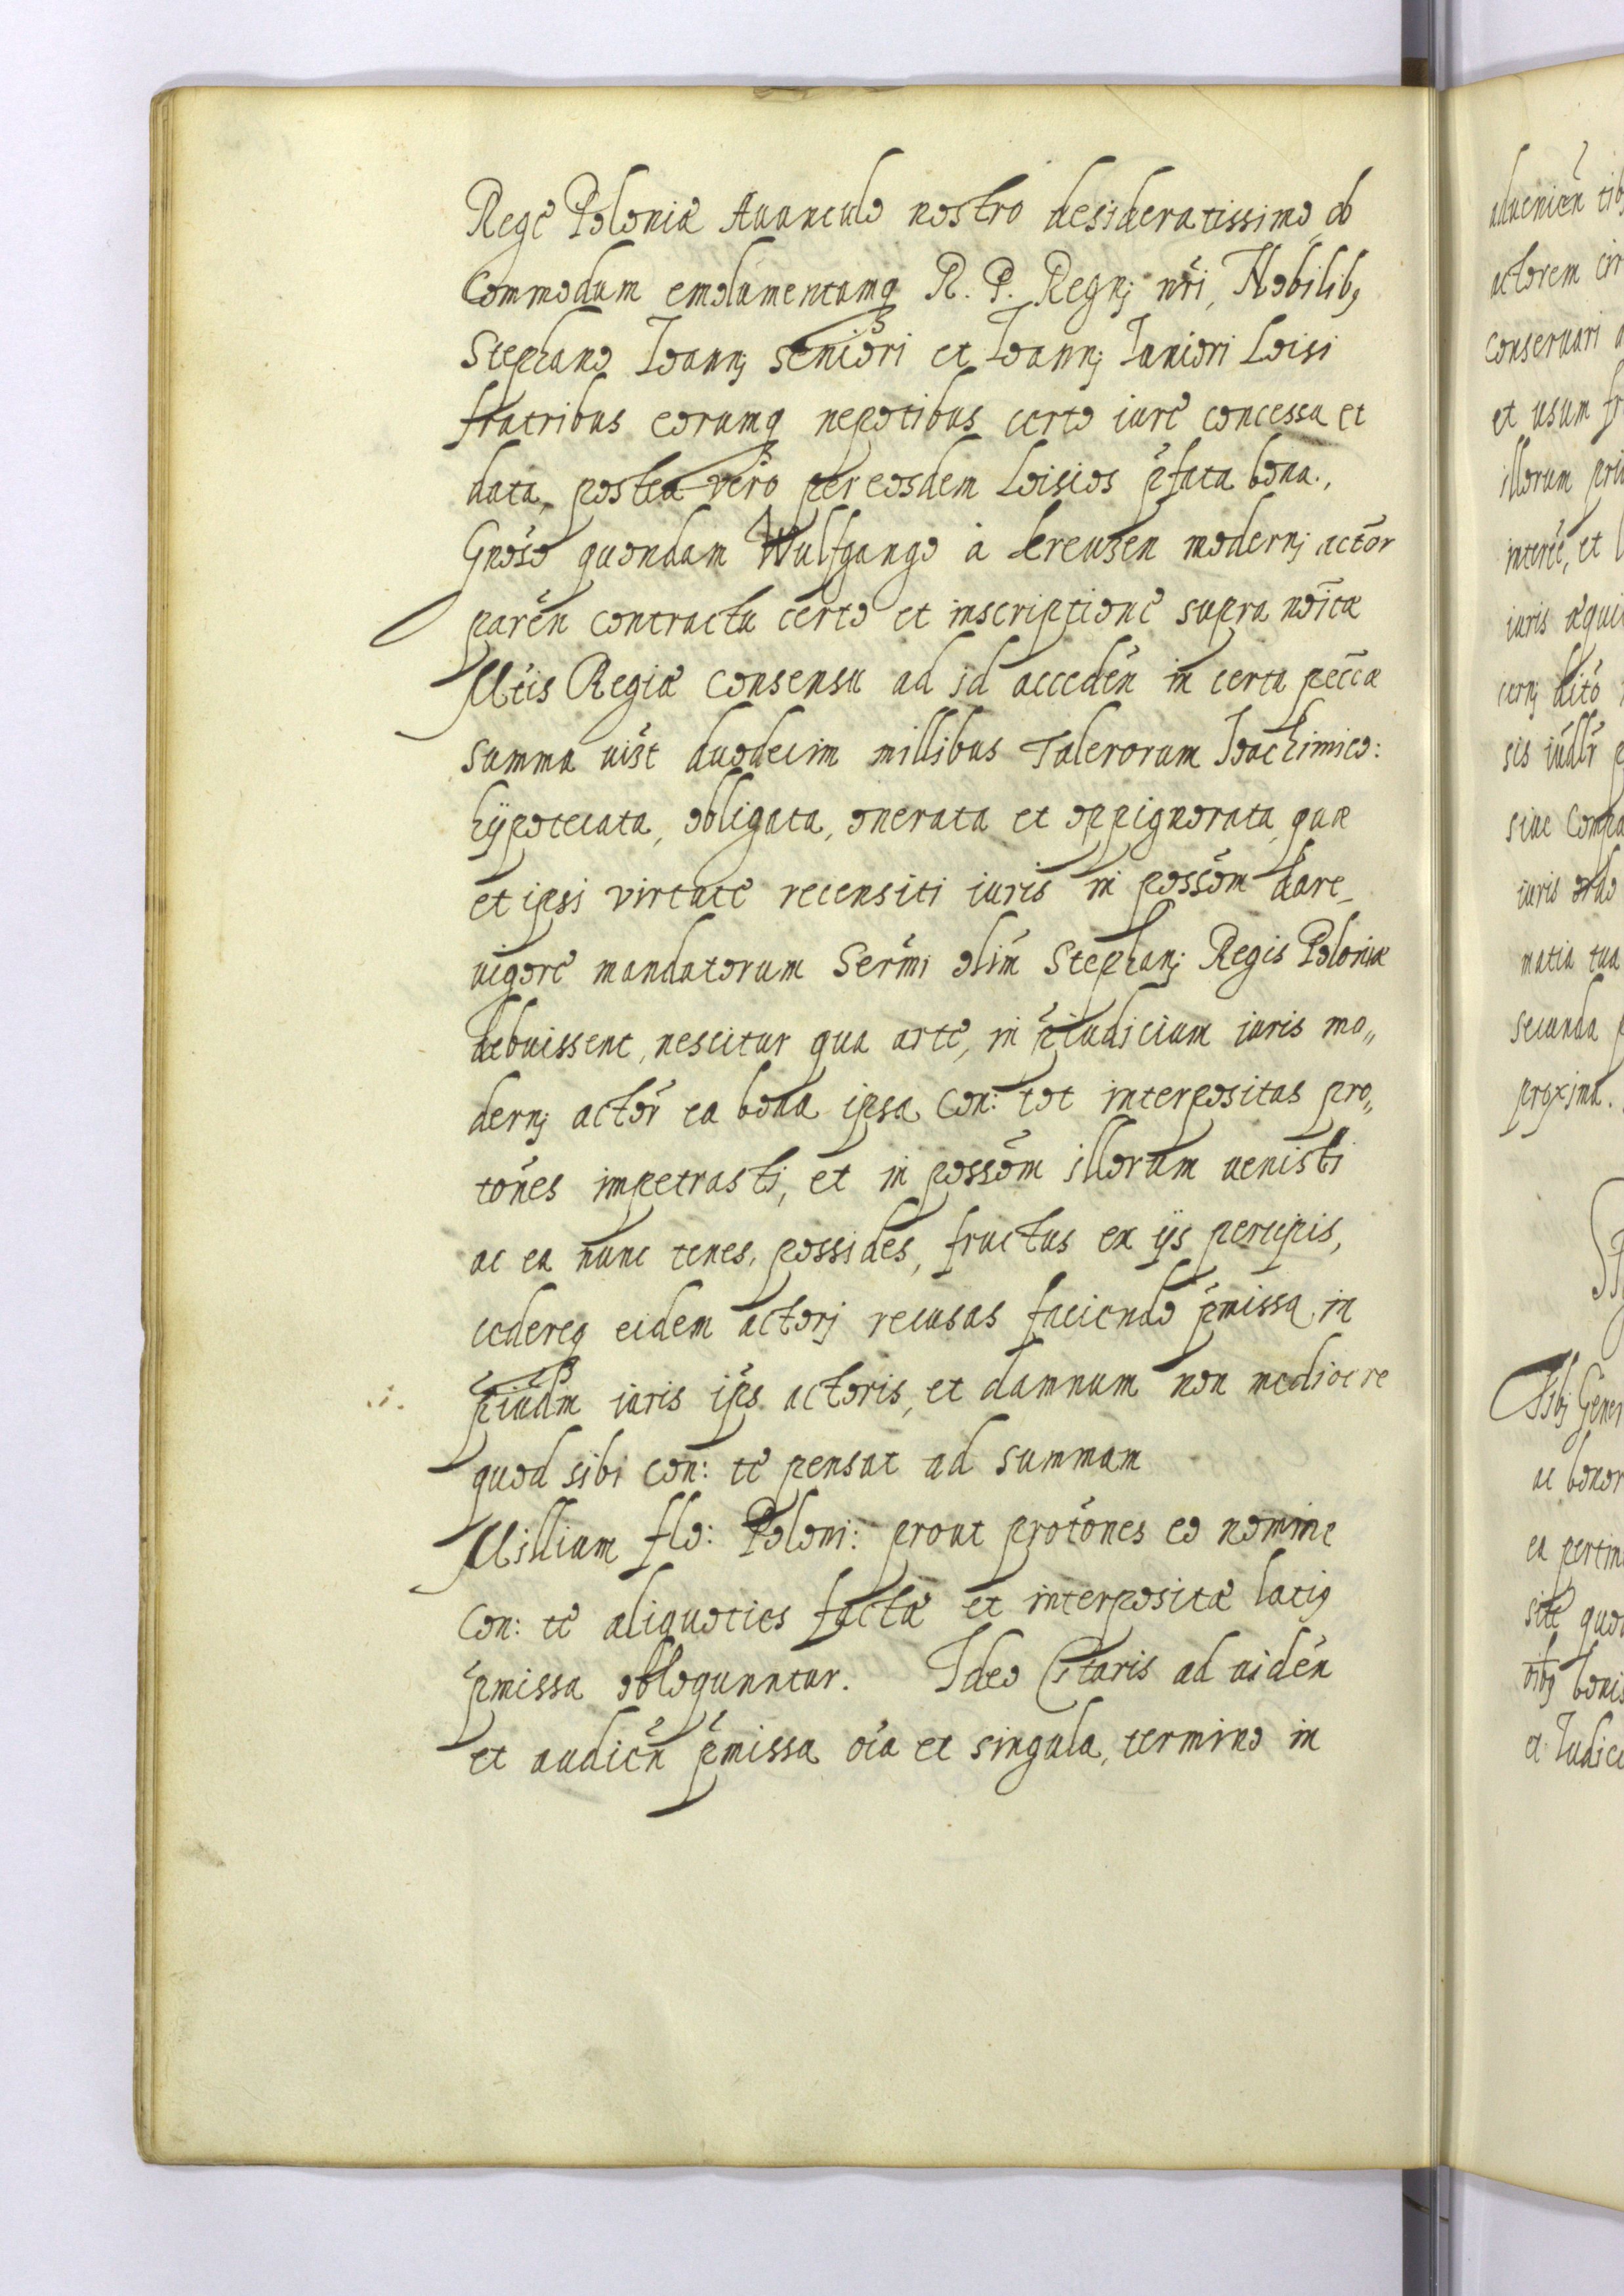 Rege Poloniæ Auunculo nostro desideratissimo, ob
Commodum emolumentumq R. P. Regnj nr̃i, Nobilibq
Stephano Ioannj seniori et Ioannj Iuniori Loisi
fratribus eorumq nepotibus certo iure concessa et
data, postea vero per eosdem Loisios p̃fata bona,
Gnoso quondam Wulfgango à kreutzen modernj actõr
parẽn contractu certo et inscriptione supra nõitæ
Mtis Regiæ consensu ad id accedẽn in certa pecc̃æ
summa uist duodecim millibus Talerorum Ioachimico:
hÿpotecata, obligata, onerata et oppignorata, quæ
et ipsi virtute recensiti iuris in possõm dare
uigore mandatorum Serm̃i olim Stephanj Regis Poloniæ
debuissent, nescitur qua arte, in p̃iudicium iuris mo„
dernj actõr ea bona ipsa Con: tot interpositas pro„
tõnes impetrasti, et in possõm illorum uenisti
ac ea nunc tenes, possides, fructus ex ijs percipis,
cedereq eidem actorj recusas faciendo p̃missa in
p̃iudm iuris ip̃s actoris, et damnum non mediocre
quod sibi con: te pensat ad summam
Millium flo: Poloni: prout protõnes eo nomine
Con: te aliquoties factæ et interpositæ latiq
p̃missa obloquuntur. Ideo Citaris ad uidẽn
et audiẽn p̃missa oĩa et singula, termino in
aduenien tibj
actorem
conseruari
et usum
illorum
interẽe, et
iuris æqui
cernj dito
sis iudlr
siue
iuris ordo
matia tua
secunda
proxima.
Tibj Gener
ac bonor
ea pertin
site quo
oibq bonis
et Iudic